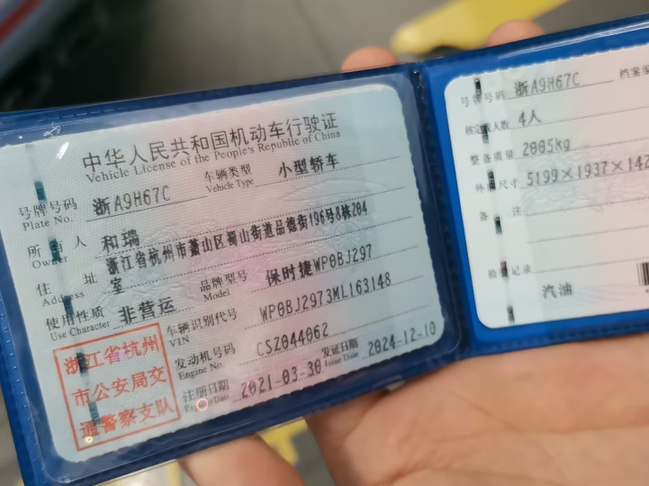 中华人民共和国机动车行驶证
Vehicle License of the People's Republic of China
号牌号码 浙A9H67C 车辆类型 小型轿车
Plate No. Vehicle Type
所有人 和瑞
Owner
住址 浙江省杭州市萧山区蜀山街道品德街196号8栋204
室
Address
使用性质 非营运 品牌型号 保时捷WP0BJ297
Use Character Model
浙江省杭州
市公安局交
通警察支队
车辆识别代号 WP0BJ2973ML163148
VIN
发动机号码 CSZ044062
Engine No.
注册日期 2021-03-30 发证日期 2024-12-10
Date Issue Date
号牌号码 浙A9H67C 档案
核定 人数 4人
整备质量 2005kg
外 尺寸 5199×1937×142
备注
检 记录
汽油